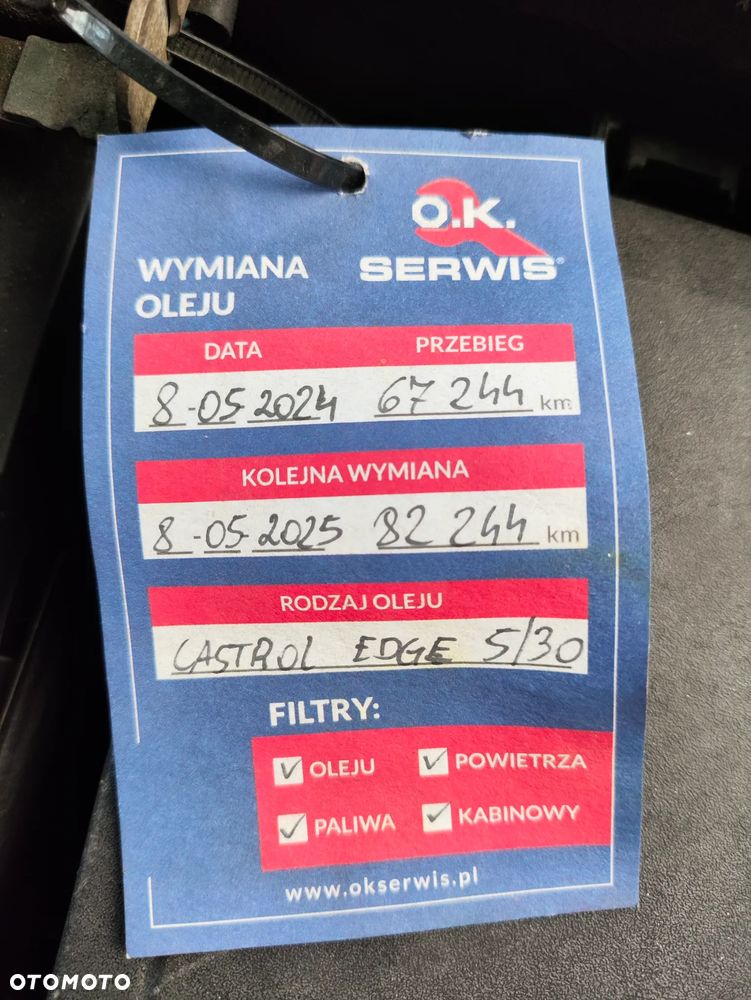 O.K.
SERWIS®
WYMIANA
OLEJU
DATA PRZEBIEG
8-05-2024 67 244 km
KOLEJNA WYMIANA
8-05-2025 82 244 km
RODZAJ OLEJU
CASTROL EDGE 5/30
FILTRY:
OLEJU POWIETRZA
PALIWA KABINOWY
www.okserwis.pl
OTOMOTO